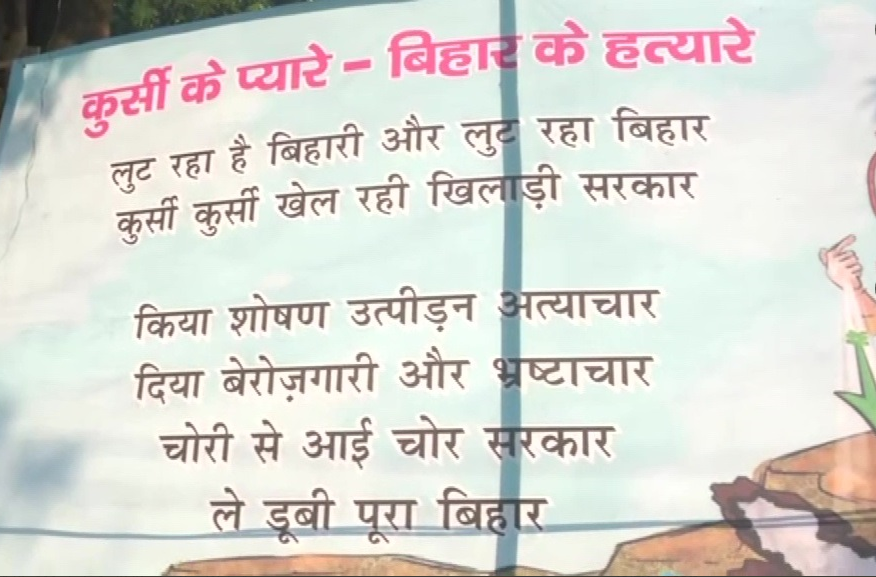 कुर्सी के प्यारे - बिहार के हत्यारे
लुट रहा है बिहारी और लुट रहा बिहार
कुर्सी कुर्सी खेल रही खिलाड़ी सरकार
किया शोषण उत्पीड़न अत्याचार
दिया बेरोज़गारी और भ्रष्टाचार
चोरी से आई चोर सरकार
ले डूबी पूरा बिहार